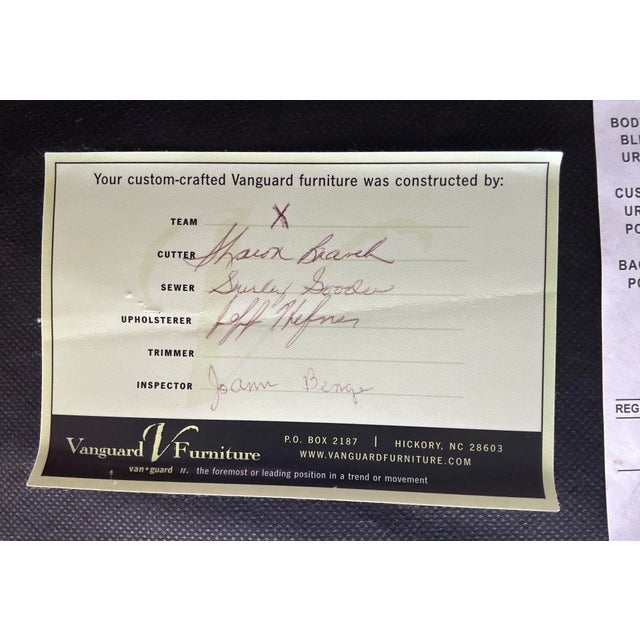 Your custom-crafted Vanguard furniture was constructed by:
TEAM X
CUTTER Sharon Branch
SEWER Shirley
UPHOLSTERER Jeff Hefner
TRIMMER
INSPECTOR Joann Benge
Vanguard V Furniture
P.O. BOX 2187 | HICKORY, NC 28603
WWW.VANGUARDFURNITURE.COM
van•guard n. the foremost or leading position in a trend or movement
BOD
BL
UR
CUS
UR
PO
BAC
PO
REG